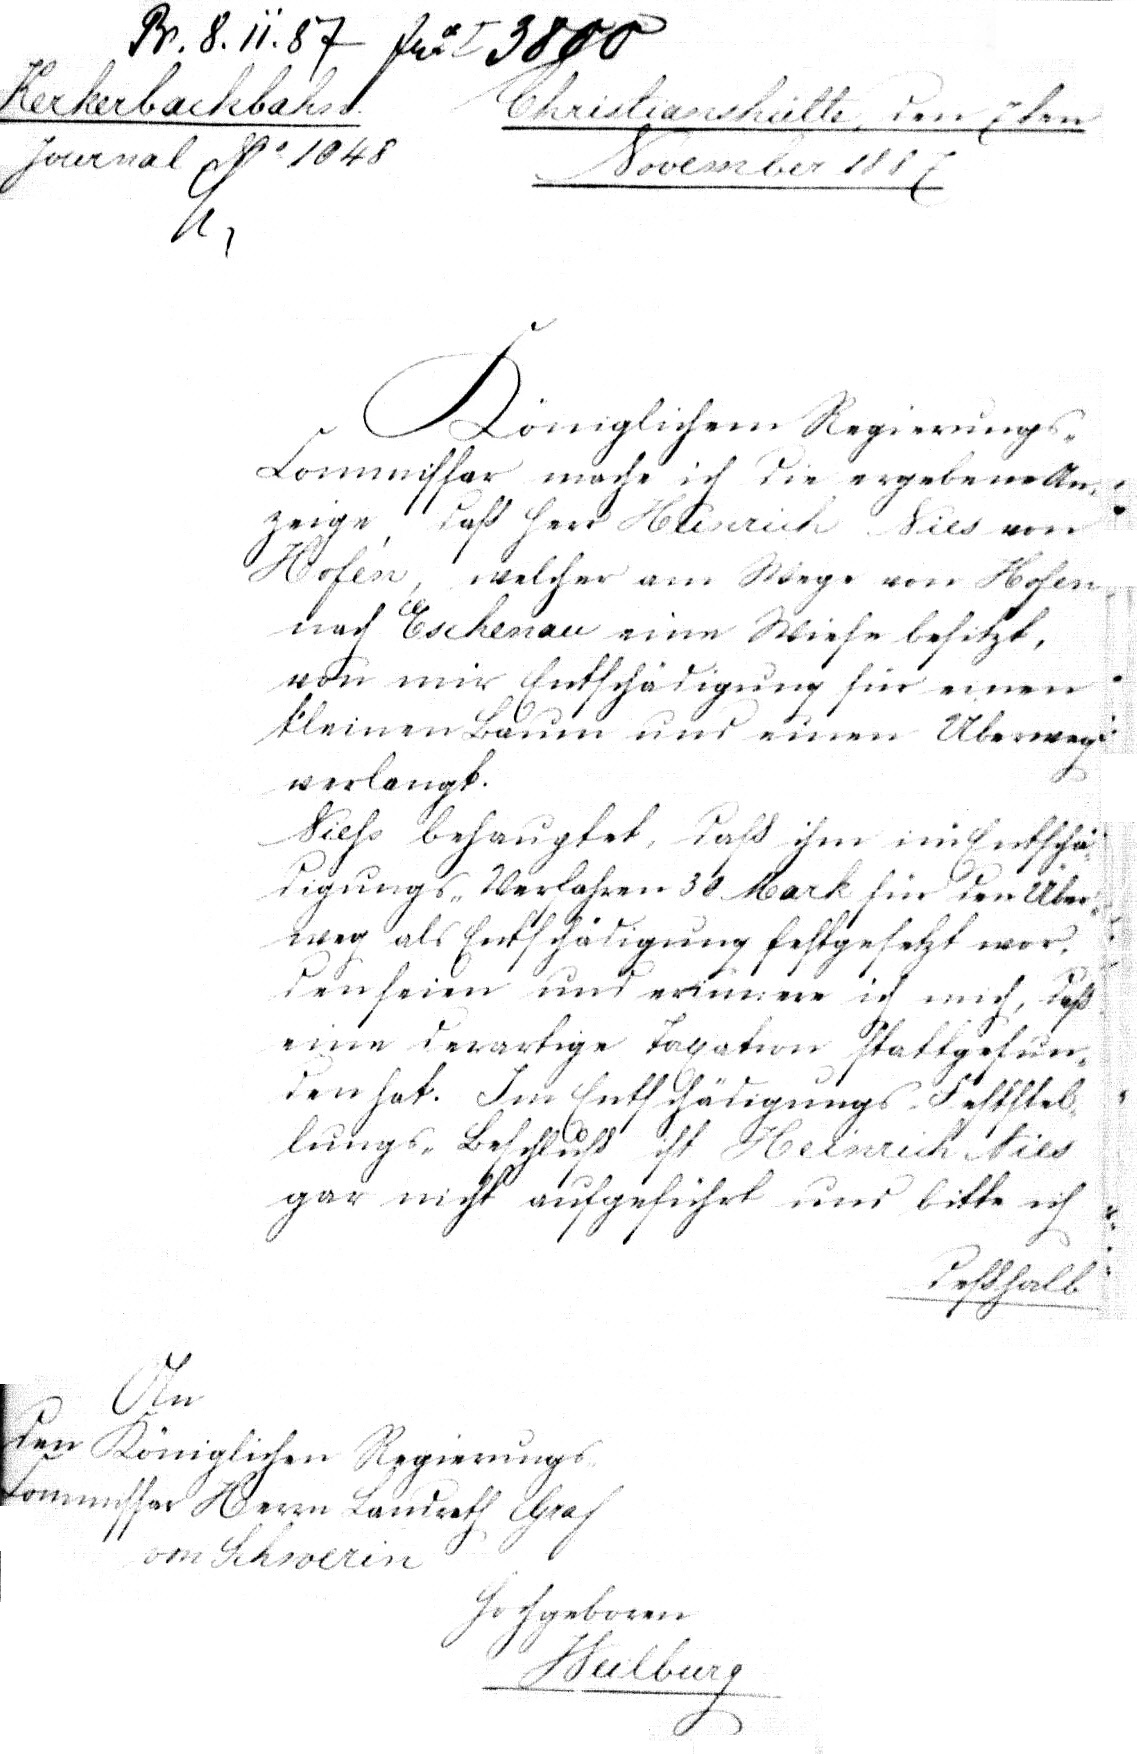 Pr. 8. 11. 87 I 3800
Kerkerbachbahn. Christianshütte, den 7ten
Journal No 1048 November 1887
Königlichem Regierungs-
Commissar mache ich die ergebene An-
zeige, daß Herr Heinrich Nies von
Hofen, welcher am Wege von Hofen
nach Eschenau eine Wiese besitzt,
von mir Entschädigung für einen
kleinen Baum und einen Überweg
verlangt.
Niess behauptet, daß ihm im Entschä-
digungs-Verfahren 30 Mark für den Über-
weg als Entschädigung festgesetzt wor-
den seien und erinnere ich mich, daß
eine derartige Taxation stattgefun-
den hat. Im Entschädigungs-Feststel-
lungs-Beschluß ist Heinrich Nies
gar nicht aufgeführt und bitte ich
deßhalb
An
den Königlichen Regierungs-
Commissar Herrn Landrath Graf
von Schwerin
Hochgeboren
Weilburg